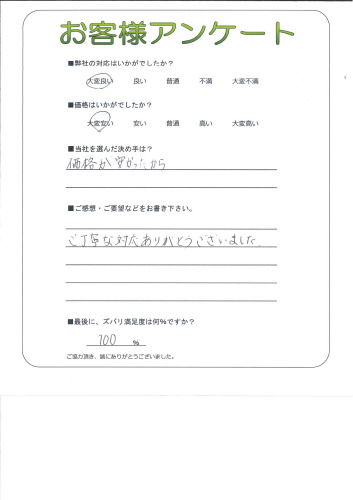 お客様アンケート
■弊社の対応はいかがでしたか?
大変良い 良い 普通 不満 大変不満
■価格はいかがでしたか?
大変安い 安い 普通 高い 大変高い
■当社を選んだ決め手は?
価格が安かったから
■ご感想・ご要望などをお書き下さい。
ご丁寧な対応ありがとうございました
■最後に、ズバリ満足度は何%ですか?
100 %
ご協力頂き、誠にありがとうございました。